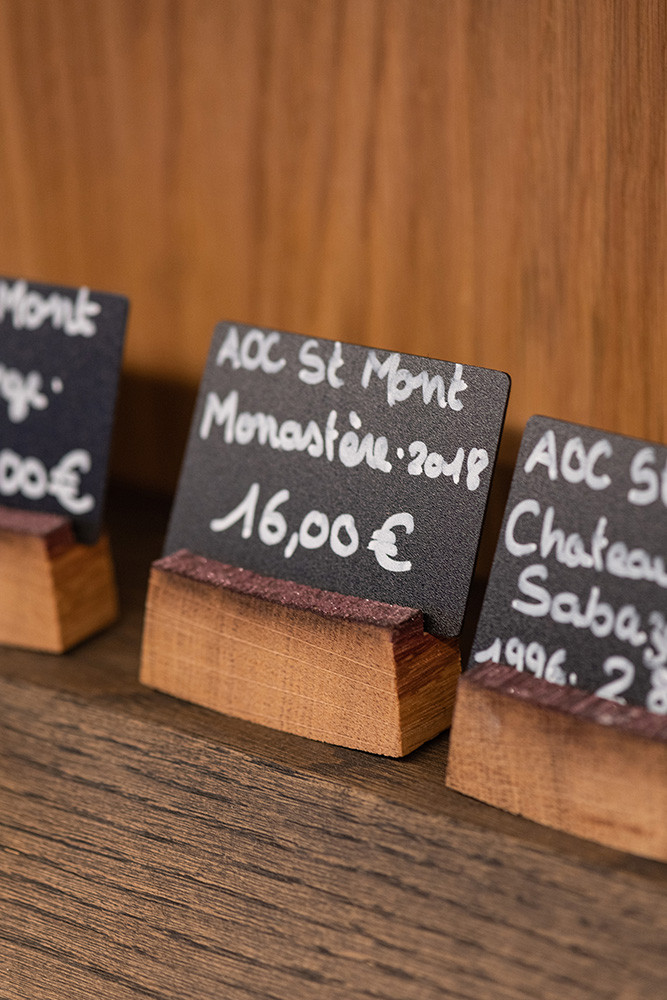 Mont
00€
AOC St Mont
Monastère. 2018
16,00€
AOC St
Chateau
Sabaz
1996. 28